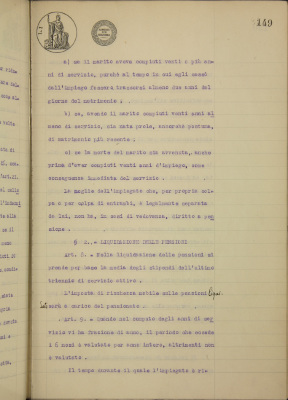 149
a) se il marito aveva compiuti venti o più an-
ni di servizio, purchè al tempo in cui egli cessò
dall'impiego fossero trascorsi almeno due anni dal
giorno del matrimonio ;
b) se, avendo il marito compiuti venti anni al-
meno di servizio, sia nata prole, ancorchè postuma,
di matrimonio più recente ;
c) se la morte del marito sia avvenuta, anche
prima d'aver compiuti venti anni d'impiego, come
conseguenza immediata del servizio .
La moglie dell'impiegato che, per propria col-
pa o per colpa di entrambi, è legalmente separata
da lui, non ha, in caso di vedovanza, diritto a pen
sione .
§ 4. - LIQUIDAZIONE DELLE PENSIONI
Art. 8. - Nella liquidazione delle pensioni si
prende per base la media degli stipendi dell'ultimo
triennio di servizio attivo .
L'imposta di ricchezza mobile sulle pensioni
sarà a carico del pensionato .
Art. 9. - Quando nel computo degli anni di ser
vizio vi ha frazione di anno, il periodo che eccede
i 6 mesi è valutato per anno intero, altrimenti non
è valutato .
Il tempo durante il quale l'impiegato è ri-